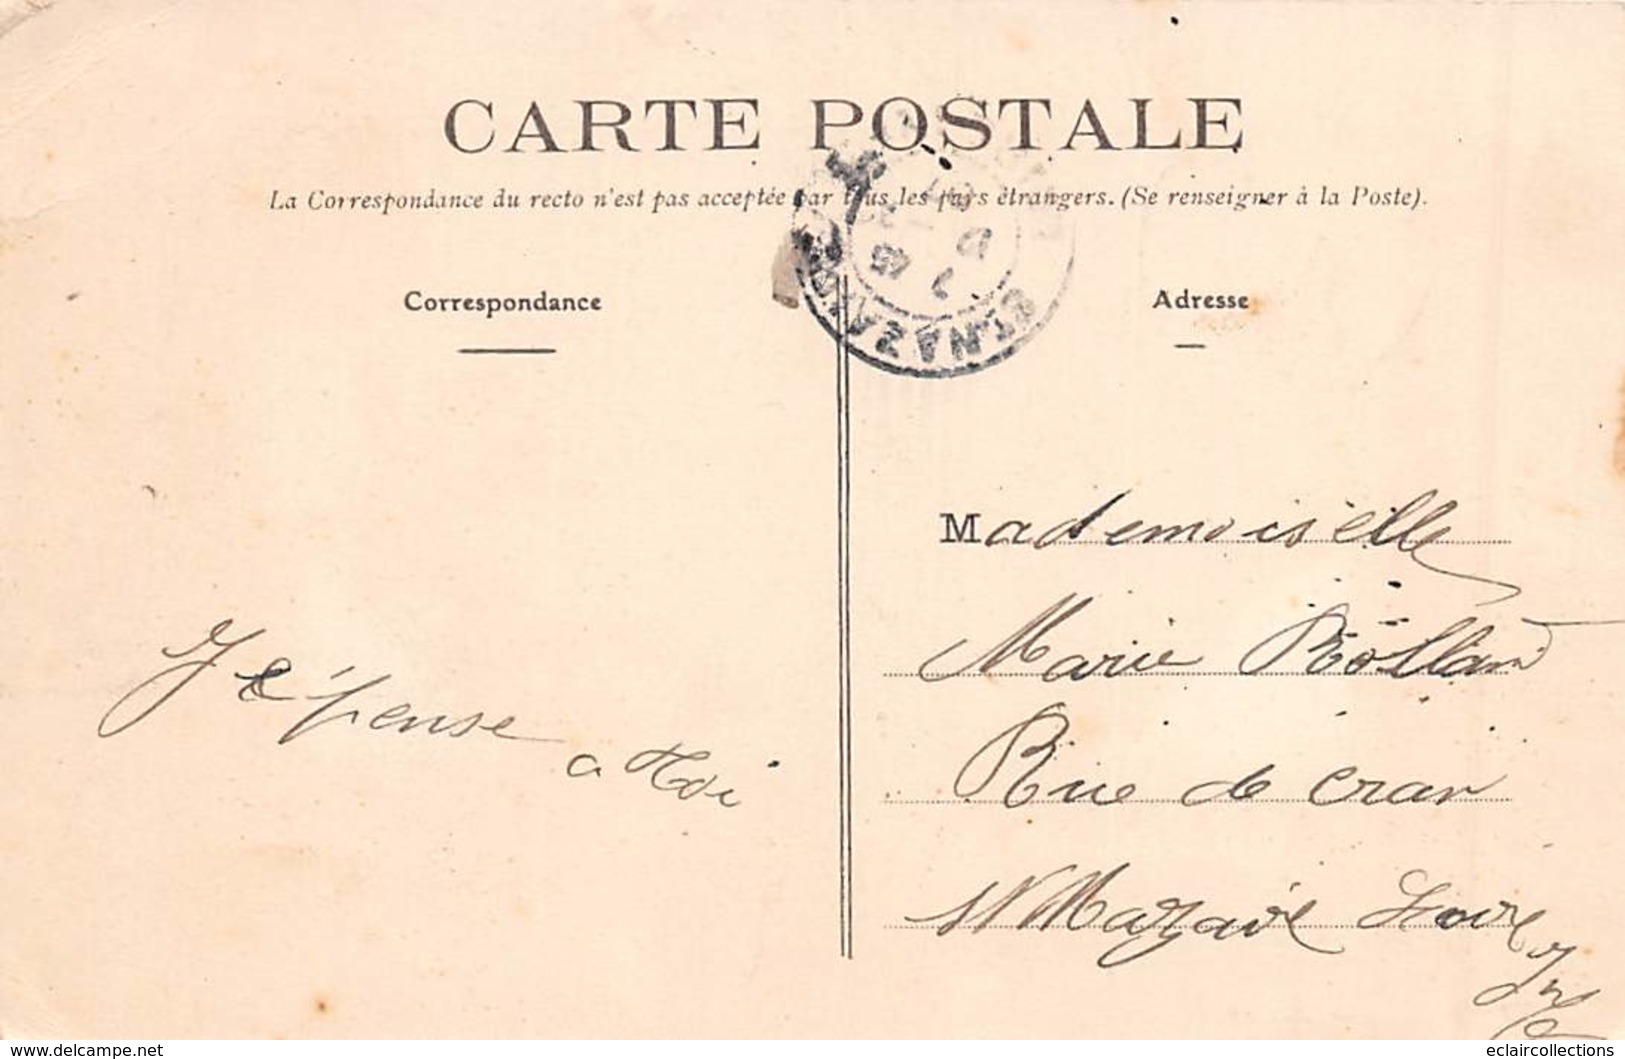 CARTE POSTALE
La Correspondance du recto n'est pas acceptée par tous les pays étrangers. (Se renseigner à la Poste).
Correspondance
Adresse
ST NAZAIRE
Mademoiselle
Marie Rolland
Rue de Cran
St Nazaire Loire
Infre
Je pense
a toi
delcampe.net
eclaircollections